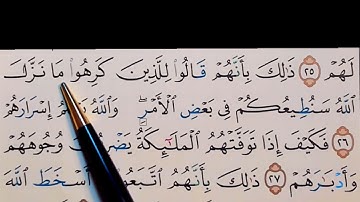 لَهُمْ ٢٥ ذَٰلِكَ بِأَنَّهُمْ قَالُوا۟ لِلَّذِينَ كَرِهُوا۟ مَا نَزَّلَ
ٱللَّهُ سَنُطِيعُكُمْ فِى بَعْضِ ٱلْأَمْرِ ۖ وَٱللَّهُ إِسْرَارَهُمْ
٢٦ فَكَيْفَ إِذَا تَوَفَّتْهُمُ ٱلْمَلَـٰٓئِكَةُ يَضْرِبُونَ وُجُوهَهُمْ
وَأَدْبَـٰرَهُمْ ٢٧ ذَٰلِكَ بِأَنَّهُمُ ٱتَّبَعُوا۟ أَسْخَطَ ٱللَّهَ